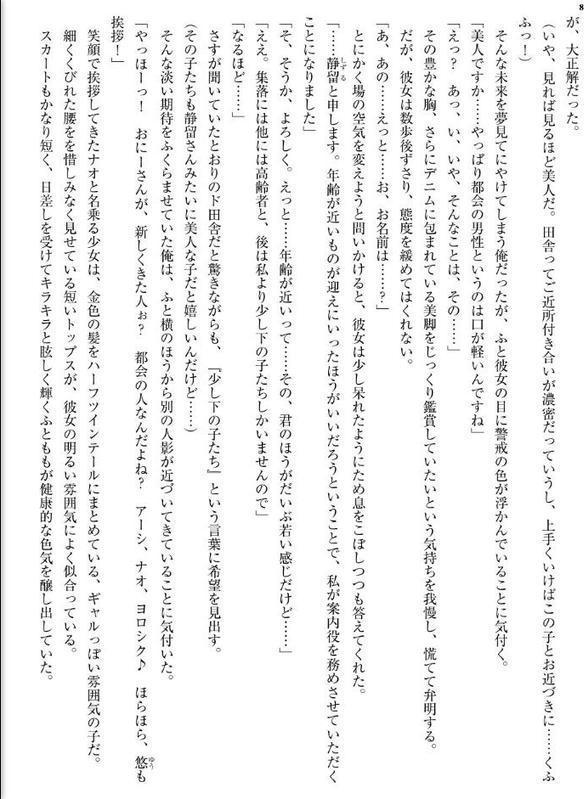 8
が、大正解だった。
（いや、見れば見るほど美人だ。田舎ってご近所付き合いが濃密だっていうし、上手くいけばこの子とお近づきに……くふ
ふっ！）
そんな未来を夢見てにやけてしまう俺だったが、ふと彼女の目に警戒の色が浮かんでいることに気付く。
「美人ですか……やっぱり都会の男性というのは口が軽いんですね」
「えっ？　あっ、い、いや、そんなことは、その……」
その豊かな胸、さらにデニムに包まれている美脚をじっくり鑑賞していたいという気持ちを我慢し、慌てて弁明する。
だが、彼女は数歩後ずさり、態度を緩めてはくれない。
「あ、あの……えっと……お、お名前は……？」
とにかく場の空気を変えようと問いかけると、彼女は少し呆れたようにため息をこぼしつつも答えてくれた。
「……静留と申します。年齢が近いものが迎えにいったほうがいいだろうということで、私が案内役を務めさせていただく
ことになりました」
「そ、そうか、よろしく。えっと……年齢が近いって……その、君のほうがだいぶ若い感じだけど……」
「ええ。集落には他には高齢者と、後は私より少し下の子たちしかいませんので」
「なるほど……」
さすが聞いていたとおりのド田舎だと驚きながらも、『少し下の子たち』という言葉に希望を見出す。
（その子たちも静留さんみたいに美人な子だと嬉しいんだけど……）
そんな淡い期待をふくらませていた俺は、ふと横のほうから別の人影が近づいてきていることに気付いた。
「やっほーっ！　おにーさんが、新しくきた人ぉ？　都会の人なんだよね？　アーシ、ナオ、ヨロシク♪　ほらほら、悠も
挨拶！」
笑顔で挨拶してきたナオと名乗る少女は、金色の髪をハーフツインテールにまとめている、ギャルっぽい雰囲気の子だ。
細くくびれた腰をを惜しみなく見せている短いトップスが、彼女の明るい雰囲気によく似合っている。
スカートもかなり短く、日差しを受けてキラキラと眩しく輝くふとももが健康的な色気を醸し出していた。